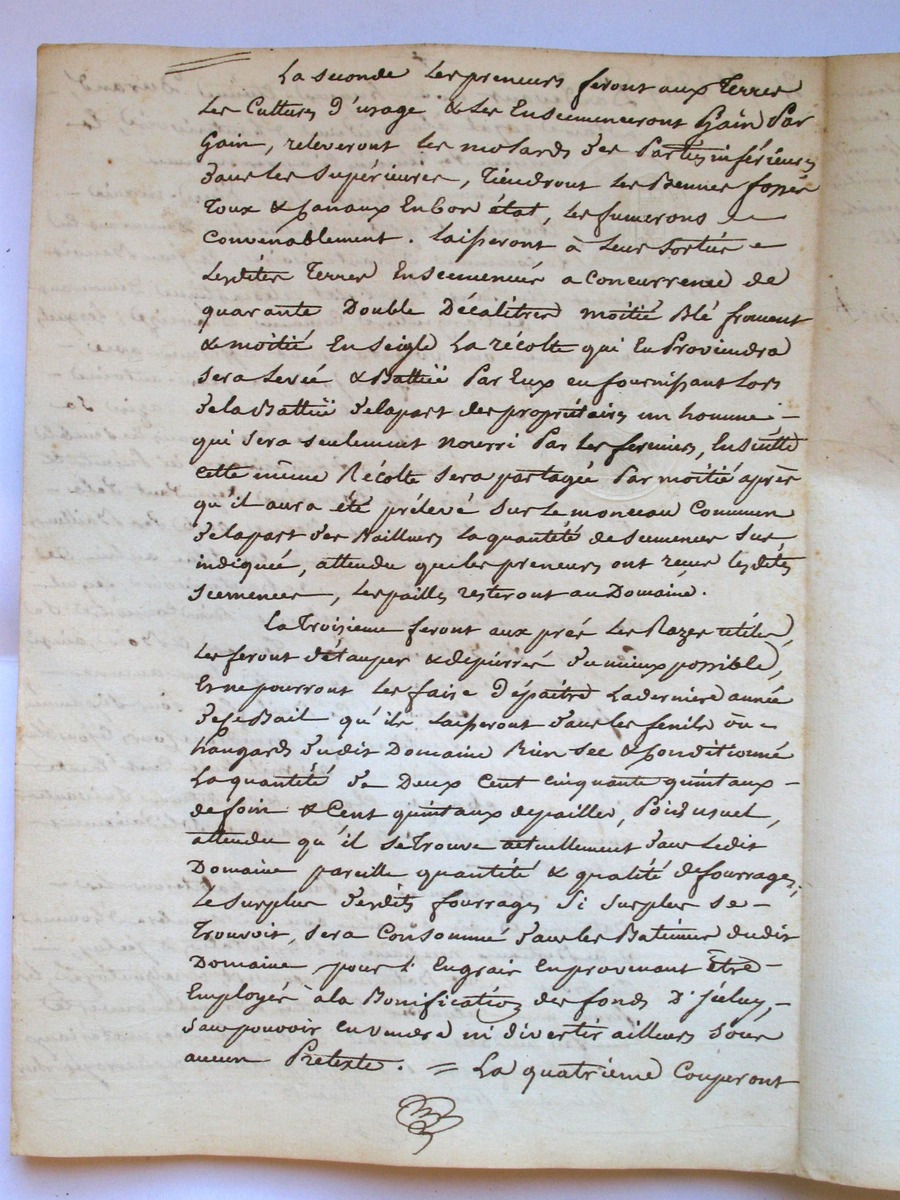 La seconde Les preneurs feront aux Terres
Les Cultures d'usage & Les Ensemenceront Gain Par
Gain, releveront les molards des Parties inférieures
dans les supérieures, Tiendront les Biennes fossés
Toux & canaux En bon état, les fumerons
Convenablement. laisseront à leur sortie
Lesdites Terres Ensemencées a Concurrence de
quarante Double Décalitres moitié Blé froment
& moitié En seigle La récolte qui En Proviendra
sera levée & Battüe Par Eux en fournissant Lors
de la Battüe de la part des propriétaires un homme -
qui sera seulement nourri Par les fermiers, Ensuitte
cette même Récolte sera partagée Par moitié après
qu'il aura été prélevé sur le monceau Commun
de la part des Bailleurs la quantité de semences sus
indiquée, attendu que les preneurs ont reçue lesdites
semences, les pailles resteront au Domaine.
La Troisieme feront aux prés les Razes utiles,
Les feront détauper & dépierrés du mieux possible,
Et ne pourront les faire Dépaitre la derniere année
de ce Bail qu'ils laisseront dans les fenils ou -
hangards dudit Domaine Bien sec & Conditionné
La quantité de Deux Cent cinquante quintaux -
de foin & Cent quintaux de paille, Poid usuel,
attendu qu'il se Trouve actuellement dans Ledit
Domaine pareille quantité & qualité de fourrages,
Le surplus desdits fourrages si surplus se -
Trouvoit, sera Consommé dans les Batimens dudit
Domaine pour l'Engrais En provenant être -
Employés à la Bonification des fonds D'jceluy, -
sans pouvoir en vendre ni divertir ailleurs sous
aucun Prétexte. = La quatrieme Couperont